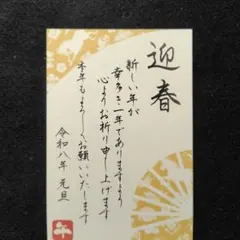 迎春
新しい年が
幸多き一年でありますよう
心よりお祈り申し上げます
本年もよろしくお願いいたします
令和八年 元旦
午